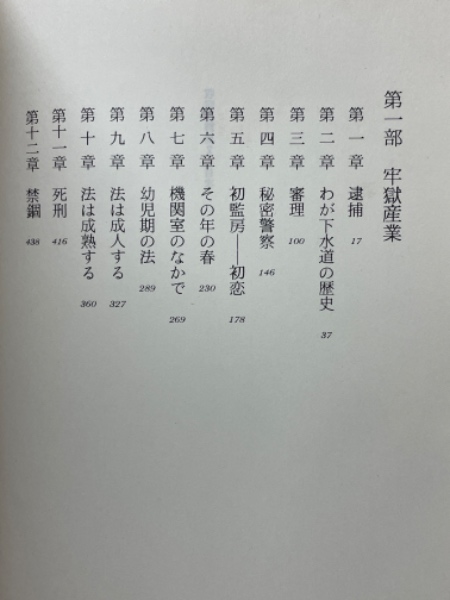 第一部 牢獄産業
第一章 逮捕 17
第二章 わが下水道の歴史 37
第三章 審理 100
第四章 秘密警察 146
第五章 初監房——初恋 178
第六章 その年の春 230
第七章 機関室のなかで 269
第八章 幼児期の法 289
第九章 法は成人する 327
第十章 法は成熟する 360
第十一章 死刑 416
第十二章 禁錮 438